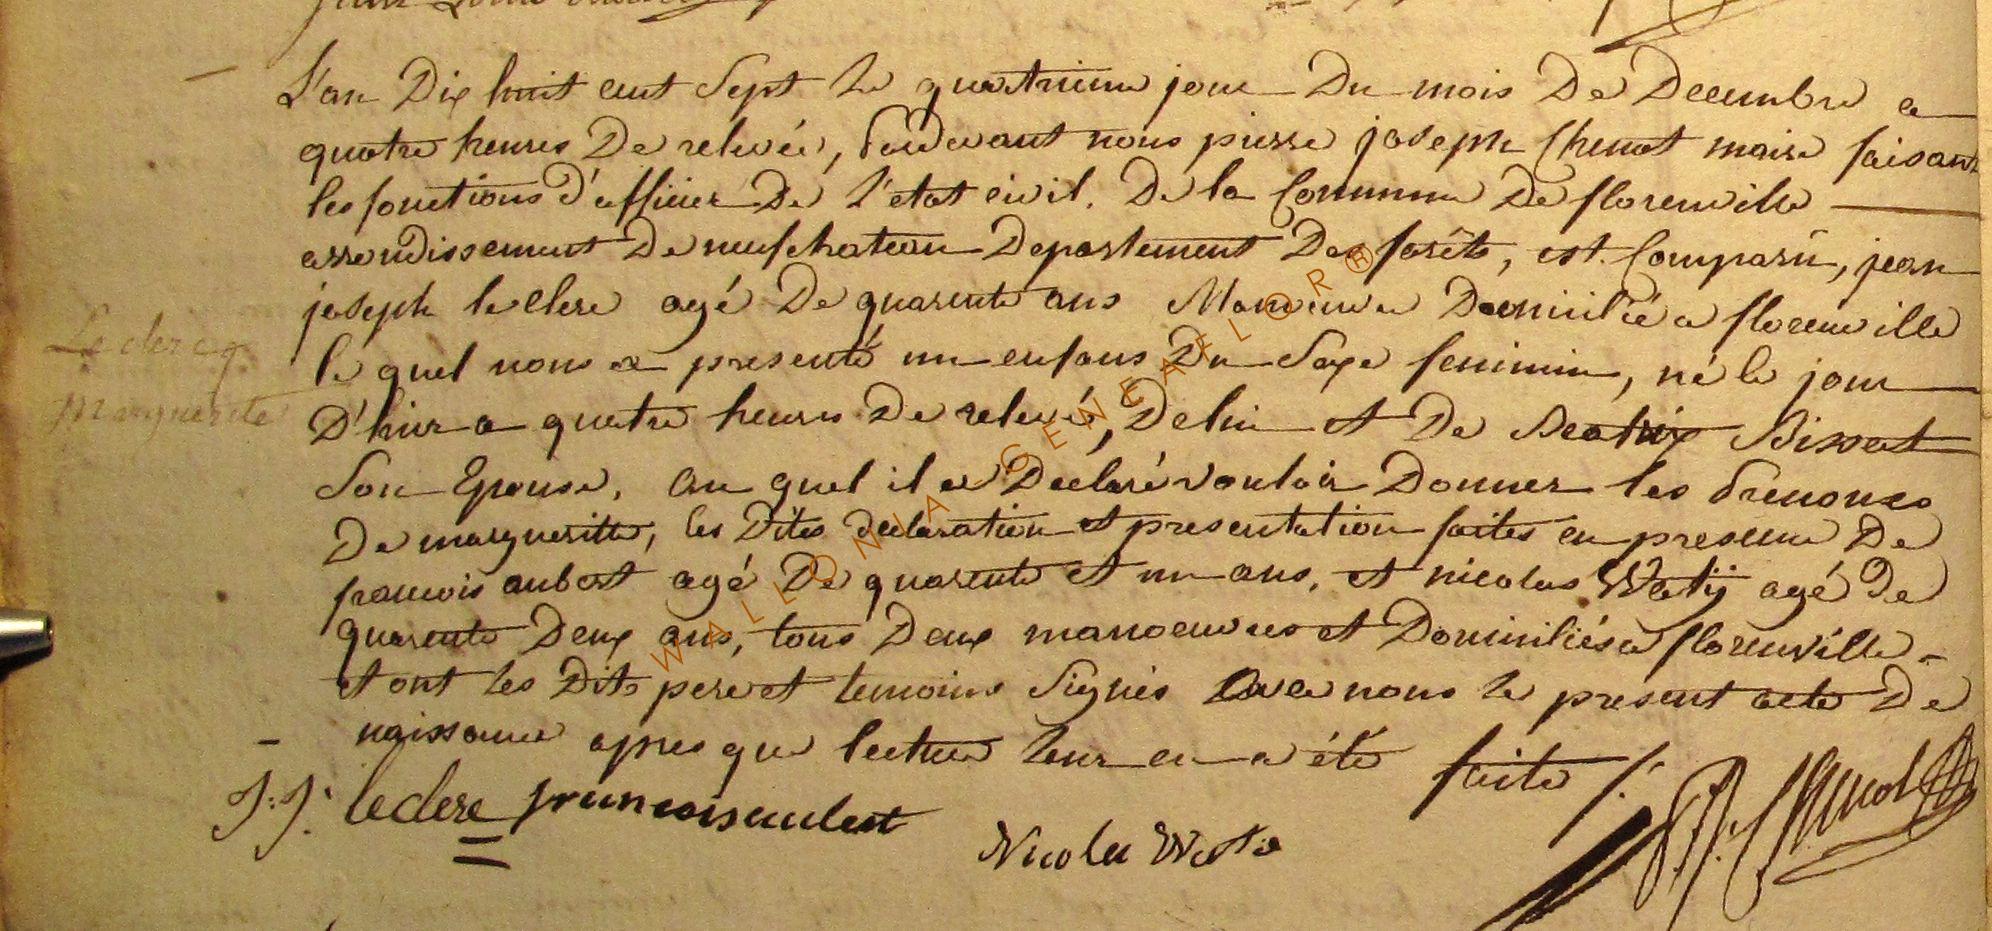 L'an Dix huit cent Sept le quatrieme jour Du mois De Decembre a
quatre heures De relevée, Pardevant nous pierre joseph Chenot maire faisant
les fonctions d'officier De l'etat civil. De la Commune De florenville
arrondissement De neufchateau Departement Des forêts, est Comparû, jean
joseph leclere agé De quarente ans Manœuvre Domicilié a florenville
le quel nous a presenté un enfans Du Sexe feminin, né le jour
D'hier a quatre heures De relevé, De lui et De Beatrix
Son Epouse, au quel il a Declaré vouloir Donner les Prenoms
De margueritte, les Dites declaration et presentation faites en presence De
francois aubert agé De quarente et un ans, et nicolas Watÿ agé De
quarente Deux ans, tous Deux manoeuvres et Domiciliés a florenville
et ont les Dits pere et temoins Signés avec nous le present acte De
naissance apres que lecture leur en a été faite /.
Leclercq
Marguerite
J: J: leclere francois aubert
Nicolas
P. J. Chenot
WALLONIA GENEAFLOR ®